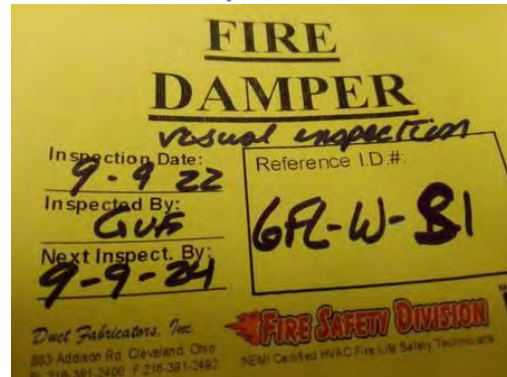 FIRE
DAMPER
visual inspection
Inspection Date:
9-9 22
Inspected By:
GUS
Next Inspect. By:
9-9-24
Reference I.D.#:
6FL-W-S1
Duct Fabricators, Inc
883 Addison Rd. Cleveland, Ohio
P: 216-391-2400 F 216-391-2492
FIRE SAFETY DIVISION
NEMI Certified HVAC Fire Life Safety Technicians